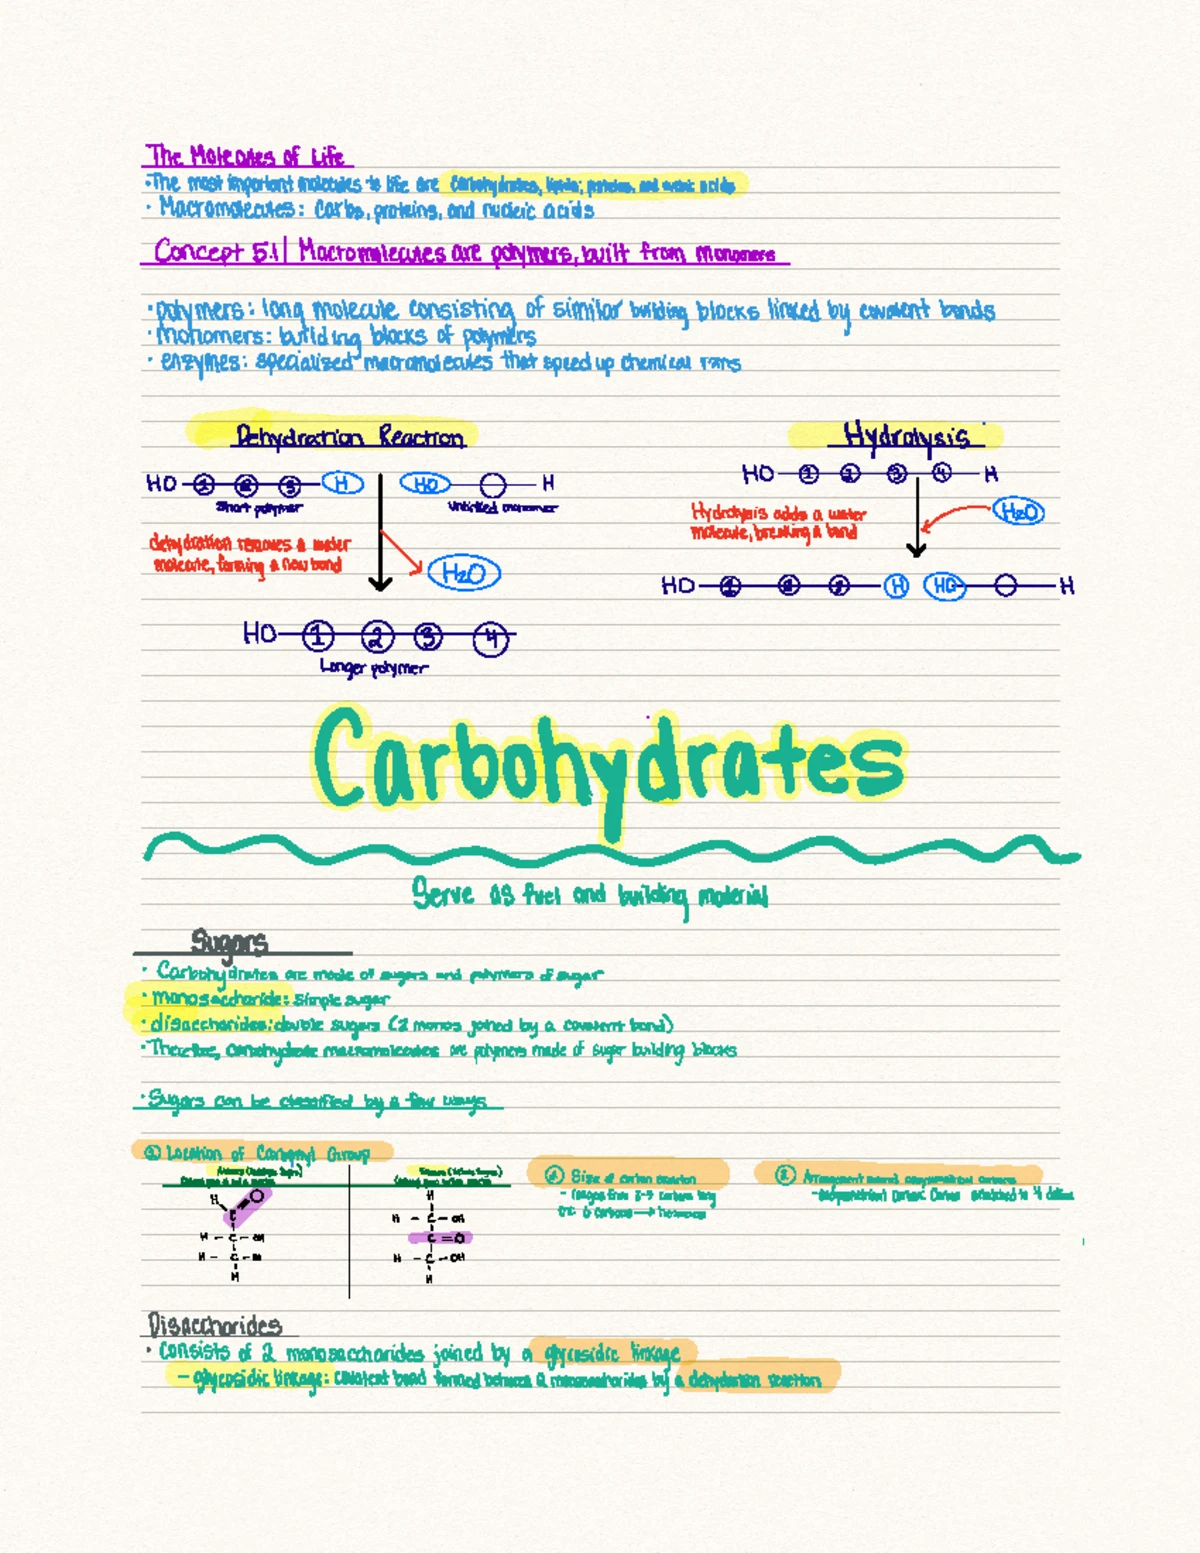 The Molecules of Life
·The most important molecules to life are carbohydrates, lipids, proteins, and nucleic acids
· Macromolecules: Carbs, proteins, and nucleic acids
Concept 5.1| Macromolecules are polymers, built from monomers
·polymers: long molecule consisting of similar building blocks linked by covalent bonds
·monomers: building blocks of polymers
· enzymes: specialized macromolecules that speed up chemical rxns
Dehydration Reaction
Hydrolysis
HO 1 2 3 H HO H
HO 1 2 3 4 H
Short polymer Unlinked monomer
Hydrolysis adds a water
molecule, breaking a bond
H₂O
dehydration removes a water
molecule, forming a new bond
H₂O
HO 1 2 3 H HO H
HO 1 2 3 4
Longer polymer
Carbohydrates
Serve as fuel and building material
Sugars
· Carbohydrates are made of sugars and polymers of sugar
· monosaccharide: simple sugar
· disaccharides: double sugars (2 monos joined by a covalent bond)
·Therefore, carbohydrate macromolecules are polymers made of sugar building blocks
·Sugars can be classified by a few ways
① Location of Carbonyl Group
② Size of carbon skeleton
- ranges from 3-7 carbons long
6 carbons → hexoses
Arrangement around asymmetrical carbons
-Asymmetrical Carbon: Carbon attached to 4
H O
C
H - C - OH
H - C -
H
H
H - C - OH
C = O
H - C - OH
H
Disaccharides
· Consists of 2 monosaccharides joined by a glycosidic linkage
- glycosidic linkage: covalent bond formed between 2 monosaccharides by a dehydration reaction